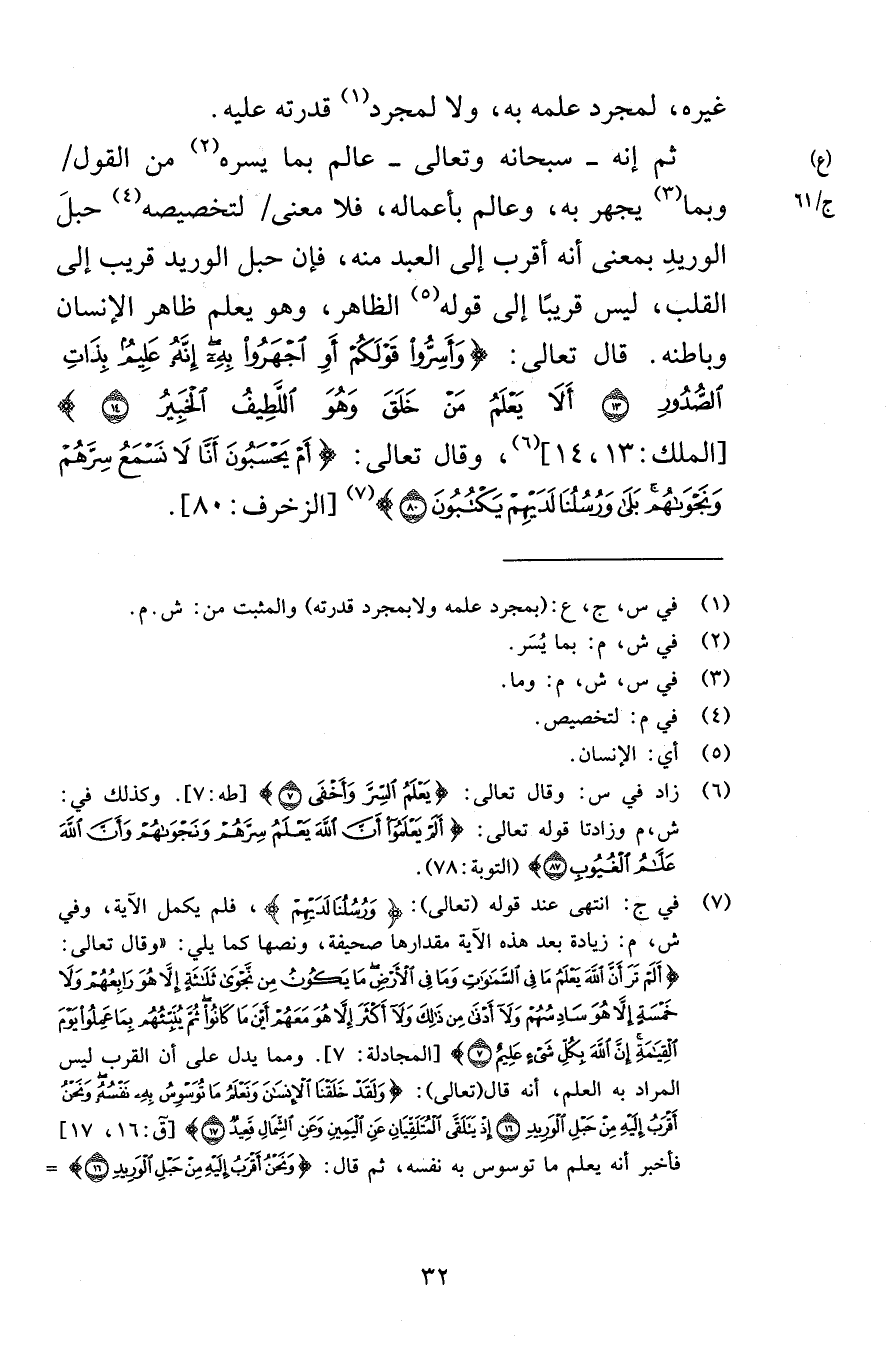 غيره، لمجرد علمه به، ولا لمجرد(١) قدرته عليه.
(ع) ثم إنه ـ سبحانه وتعالى ـ عالم بما يسره(٢) من القول/
ج/٦١ وبما(٣) يجهر به، وعالم بأعماله، فلا معنى/ لتخصيصه(٤) حبلَ
الوريدِ بمعنى أنه أقرب إلى العبد منه، فإن حبل الوريد قريب إلى
القلب، ليس قريبًا إلى قوله(٥) الظاهر، وهو يعلم ظاهر الإنسان
وباطنه. قال تعالى: ﴿وَأَسِرُّوا۟ قَوْلَكُمْ أَوِ ٱجْهَرُوا۟ بِهِۦٓ ۖ إِنَّهُۥ عَلِيمٌۢ بِذَاتِ
ٱلصُّدُورِ ١٣ أَلَا يَعْلَمُ مَنْ خَلَقَ وَهُوَ ٱللَّطِيفُ ٱلْخَبِيرُ ١٤﴾
[الملك: ١٣، ١٤](٦)، وقال تعالى: ﴿أَمْ يَحْسَبُونَ أَنَّا لَا نَسْمَعُ سِرَّهُمْ
وَنَجْوَىٰهُم ۚ بَلَىٰ وَرُسُلُنَا لَدَيْهِمْ يَكْتُبُونَ ٨٠﴾(٧) [الزخرف: ٨٠].
(١) في س، ج، ع: (بمجرد علمه ولابمجرد قدرته) والمثبت من: ش.م.
(٢) في ش، م: بما يُسَر.
(٣) في س، ش، م: وما.
(٤) في م: لتخصيص.
(٥) أي: الإنسان.
(٦) زاد في س: وقال تعالى: ﴿يَعْلَمُ ٱلسِّرَّ وَأَخْفَى ٧﴾ [طه: ٧]. وكذلك في:
ش،م وزادتا قوله تعالى: ﴿أَلَمْ يَعْلَمُوٓا۟ أَنَّ ٱللَّهَ يَعْلَمُ سِرَّهُمْ وَنَجْوَىٰهُمْ وَأَنَّ ٱللَّهَ
عَلَّـٰمُ ٱلْغُيُوبِ ٨٧﴾ (التوبة: ٧٨).
(٧) في ج: انتهى عند قوله (تعالى): ﴿وَرُسُلُنَا لَدَيْهِمْ﴾، فلم يكمل الآية، وفي
ش، م: زيادة بعد هذه الآية مقدارها صحيفة، ونصها كما يلي: «وقال تعالى:
﴿أَلَمْ تَرَ أَنَّ ٱللَّهَ يَعْلَمُ مَا فِى ٱلسَّمَـٰوَٰتِ وَمَا فِى ٱلْأَرْضِ ۖ مَا يَكُونُ مِن نَّجْوَىٰ ثَلَـٰثَةٍ إِلَّا هُوَ رَابِعُهُمْ وَلَا
خَمْسَةٍ إِلَّا هُوَ سَادِسُهُمْ وَلَآ أَدْنَىٰ مِن ذَٰلِكَ وَلَآ أَكْثَرَ إِلَّا هُوَ مَعَهُمْ أَيْنَ مَا كَانُوا۟ ۖ ثُمَّ يُنَبِّئُهُم بِمَا عَمِلُوا۟ يَوْمَ
ٱلْقِيَـٰمَةِ ۚ إِنَّ ٱللَّهَ بِكُلِّ شَىْءٍ عَلِيمٌ ٧﴾ [المجادلة: ٧]. ومما يدل على أن القرب ليس
المراد به العلم، أنه قال(تعالى): ﴿وَلَقَدْ خَلَقْنَا ٱلْإِنسَـٰنَ وَنَعْلَمُ مَا تُوَسْوِسُ بِهِۦ نَفْسُهُۥ ۖ وَنَحْنُ
أَقْرَبُ إِلَيْهِ مِنْ حَبْلِ ٱلْوَرِيدِ ١٦ إِذْ يَتَلَقَّى ٱلْمُتَلَقِّيَانِ عَنِ ٱلْيَمِينِ وَعَنِ ٱلشِّمَالِ قَعِيدٌ ١٧﴾ [قٓ: ١٦، ١٧]
فأخبر أنه يعلم ما توسوس به نفسه، ثم قال: ﴿وَنَحْنُ أَقْرَبُ إِلَيْهِ مِنْ حَبْلِ ٱلْوَرِيدِ ١٦﴾ =
٣٢